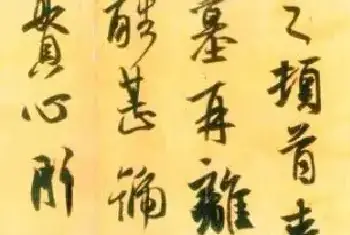 之頓首喪
墓再離
酷甚號
貫心肝